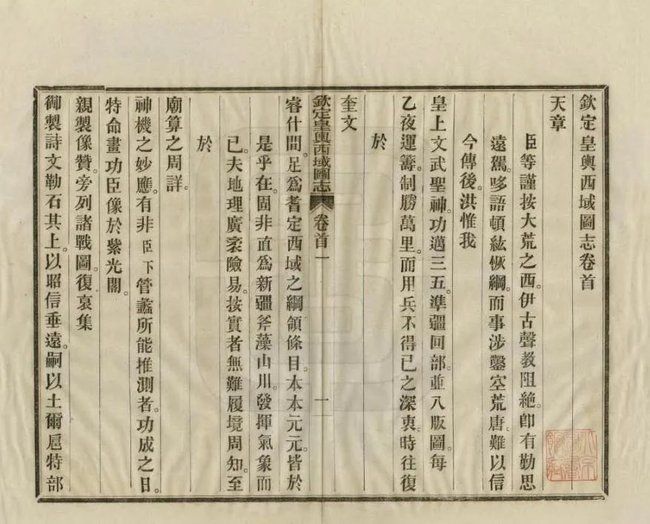 欽定皇輿西域圖志卷首
天章
臣等謹按大荒之西伊古聲教阻絶卽有勤思
遠駕。哆語頓紘恢綱。而事涉鑿空荒唐。難以信
今傳後。洪惟我
皇上文武聖神。功邁三五。準疆回部。並入版圖。每
乙夜運籌。制勝萬里。而用兵不得已之深衷。時往復
於
奎文
欽定皇輿西域圖志
卷首一
一
睿什間。足爲耆定西域之綱領條目。本本元元。皆於
是乎在。固非直爲新疆斧藻山川。發揮氣象而
已。夫地理廣袤險易。按實者無難履境周知。至
於
廟算之周詳。
神機之妙應。有非臣下管蠡所能推測者。功成之日。
特命畫功臣像於紫光閣。
親製像贊。旁列諸戰圖。復裒集
御製詩文勒石其上。以昭信垂遠。嗣以土爾扈特部